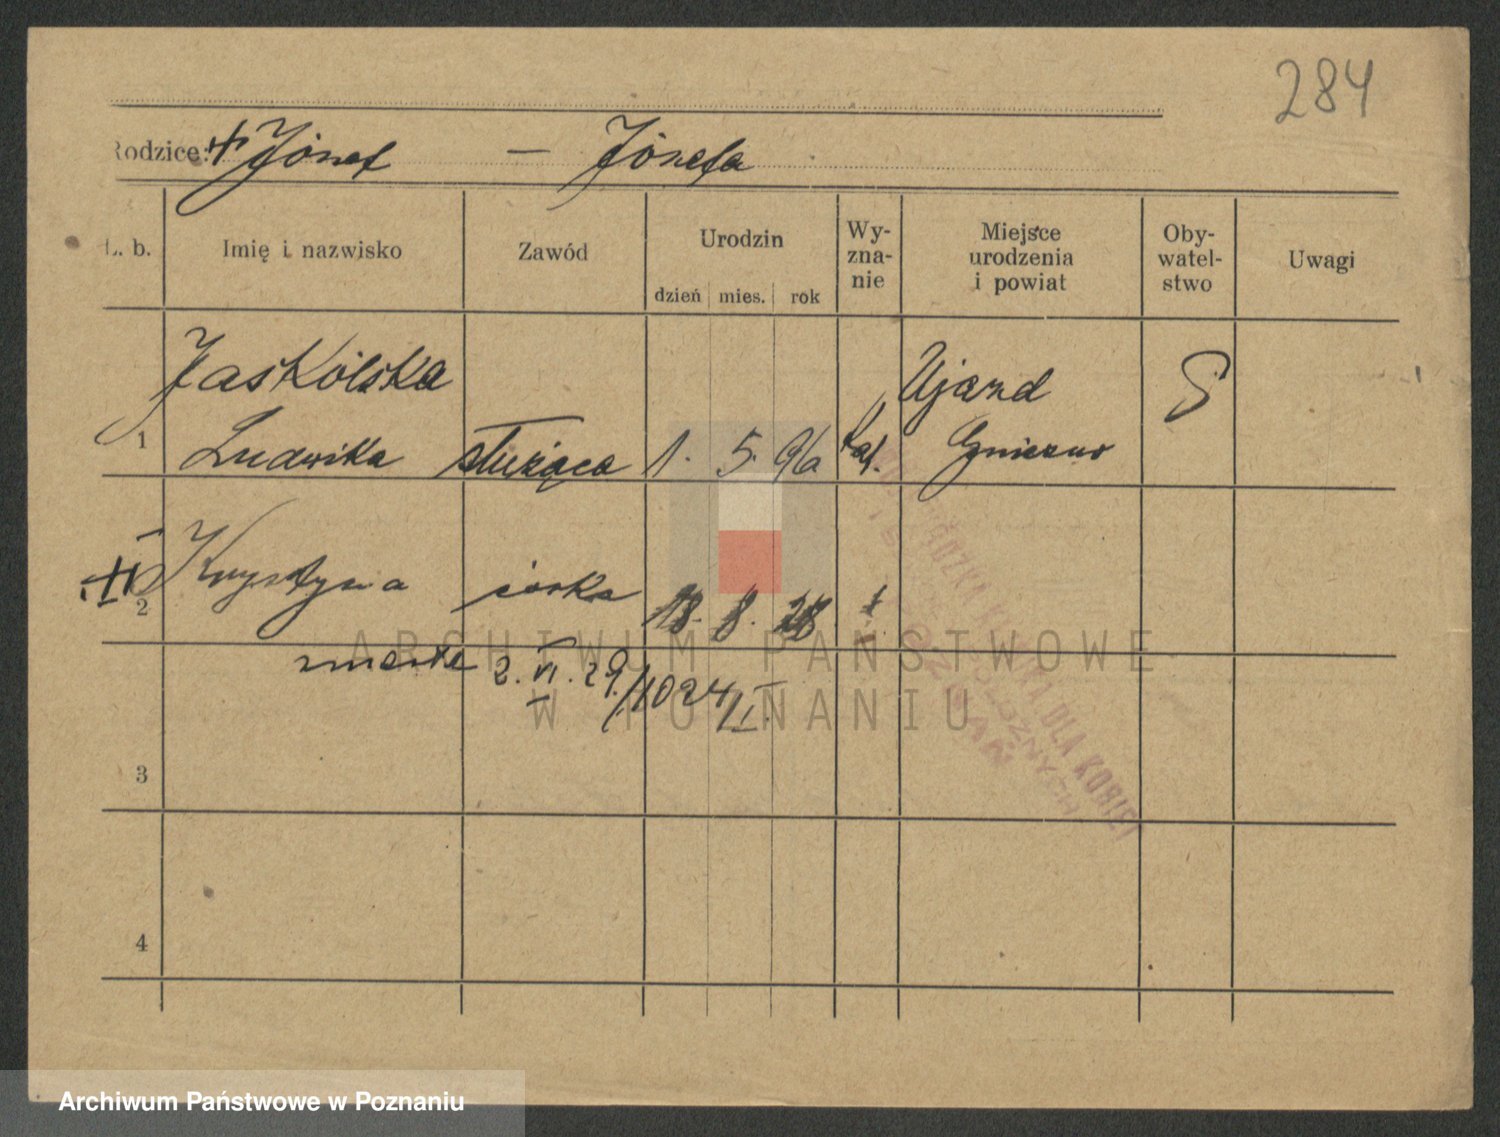 284
Rodzice: + Józef — Józefa
L. b. Imię i nazwisko Zawód Urodzin dzień mies. rok Wy-zna-nie Miejsce urodzenia i powiat Oby-watel-stwo Uwagi
Jaskólska Ujazd S
1 Ludwika służąca 1. 5. 96 kat. Gniezno
2 Krystyna córka 18. 8. 28
zmarła 2. VI. 29. /1024/I.
3
4
ARCHIWUM PAŃSTWOWE
W POZNANIU
DLA KOBIET
Archiwum Państwowe w Poznaniu